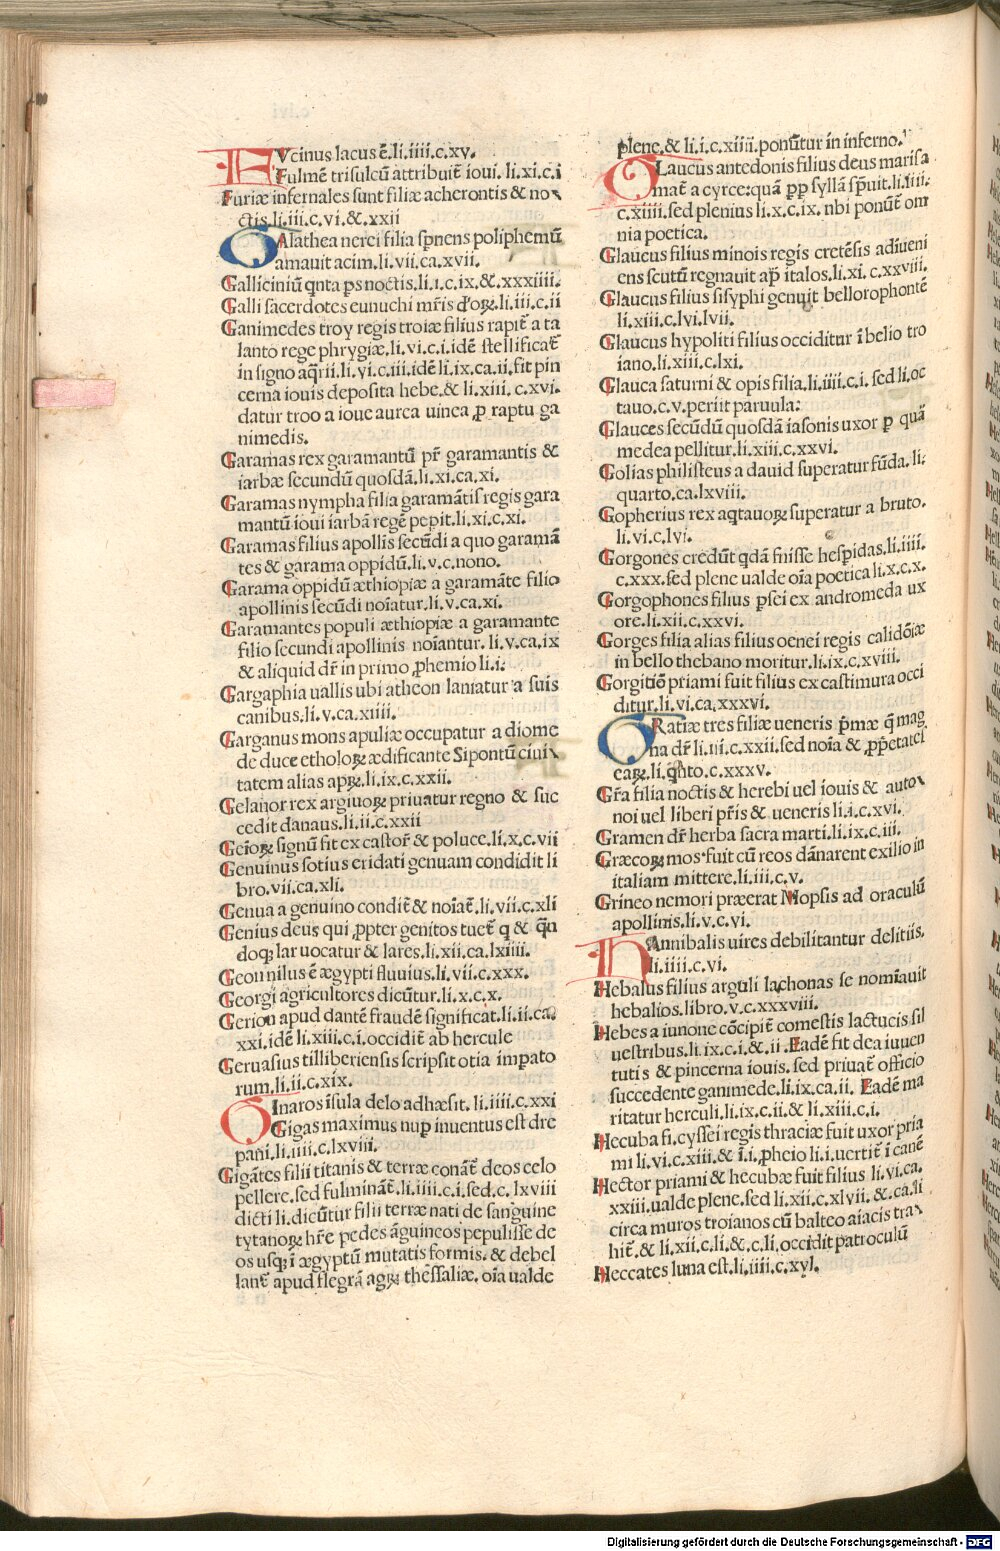 FVcinus lacus ē.li.iiii.c.xv.
Fulmē trisulcū attribuit̄ ioui. li.xi.c.i
Furiæ infernales sunt filiæ acherontis & no
ctis.li.iii.c.vi.&.xxii
GAlathea nerei filia sp̄nens poliphemū
amauit acim.li.vii.ca.xvii.
Galliciniū qnta ps noctis.li.i.c.ix.&.xxxiiii.
Galli sacerdotes eunuchi mr̄is d̓oꝝ.li.iii.c.ii
Ganimedes troy regis troiæ filius rapit̄ a ta
lanto rege phrygiæ.li.vi.c.i.idē stellificat̄
in signo aq̄rii.li.vi.c.iii.idē li.ix.ca.ii.fit pin
cerna iouis deposita hebe.& li.xiii.c.xvi.
datur troo a ioue aurea uinea ꝓ raptu ga
nimedis.
Garamas rex garamantū pr̄ garamantis &
iarbæ secundū quosdā.li.xi.ca.xi.
Garamas nympha filia garamātis regis gara
mantū ioui iarbā regē pepit.li.xi.c.xi.
Garamas filius apollis secūdi a quo garamā
tes & garama oppidū.li.v.c.nono.
Garama oppidū æthiopiæ a garamāte filio
apollinis secūdi noīatur.li.v.ca.xi.
Garamantes populi æthiopiæ a garamante
filio secundi apollinis noīantur.li.v.ca.ix
& aliquid dr̄ in primo ꝓhemio li.i.
Gargaphia uallis ubi atheon laniatur a suis
canibus.li.v.ca.xiiii.
Garganus mons apuliæ occupatur a diome
de duce etholoꝝ ædificante Sipontū ciui
tatem alias apꝝ.li.ix.c.xxii.
Gelanor rex argiuoꝝ priuatur regno & suc
cedit danaus.li.ii.c.xxii
Geīoꝝ signū fit ex castor̄ & poluce.li.x.c.vii
Genuinus sotius eridati genuam condidit li
bro.vii.ca.xli.
Genua a genuino condit̄ & noīat̄.li.vii.c.xli
Genius deus qui ꝓpter genitos tuet̄ q & qn̄
doqꝫ lar uocatur & lares.li.xii.ca.lxiiii.
Geon nilus ē ægypti fluuius.li.vii.c.xxx.
Georgi agricultores dicūtur.li.x.c.x.
Gerion apud dantē fraudē significat.li.ii.ca.
xxi.idē li.xiii.c.i.occidit̄ ab hercule
Geruasius tilliberiensis scripsit otia impato
rum.li.ii.c.xix.
GInaros īsula delo adhæsit.li.iiii.c.xxi
Gigas maximus nup inuentus est dre
pani.li.iiii.c.lxviii.
Gigātes filii titanis & terræ conāt̄ deos celo
pellere.sed fulmināt̄.li.iiii.c.i.sed.c.lxviii
dicti li.dicūtur filii terræ nati de sanguine
tytanoꝝ hr̄e pedes āguineos pepulisse de
os usqꝫ ī ægyptū mutatis formis.& debel
lant̄ apud flegrā agꝝ thessaliæ.oīa ualde
plene.& li.i.c.xiiii.ponūtur in inferno.
GLaucus antedonis filius deus maris a
mat̄ a cyrce:quā ꝓp syllā sp̄uit.li.iiii.
c.xiiii.sed plenius li.x.c.ix.nbi ponūt̄ om
nia poetica.
Glaucus filius minois regis cretēsis adiueni
ens scutū regnauit ap̄ italos.li.xi.c.xxviii.
Glaucus filius sisyphi genuit bellorophontē
li.xiii.c.lvi.lvii.
Glaucus hypoliti filius occiditur ī belio tro
iano.li.xiii.c.lxi.
Glauca saturni & opis filia.li.iiii.c.i.sed li.oc
tauo.c.v.periit paruula:
Glauces secūdū quosdā iasonis uxor ꝓ quā
medea pellitur.li.xiii.c.xxvi.
Golias philisteus a dauid superatur fūda.li.
quarto.ca.lxviii.
Gopherius rex aqtauoꝝ superatur a bruto.
li.vi.c.lvi.
Gorgones credūt qdā fnisse hespidas.li.iiii.
c.xxx.sed plene ualde oīa poetica li.x.c.x.
Gorgophones filius psei ex andromeda ux
ore.li.xii.c.xxvi.
Gorges filia alias filius oenei regis calidōiæ
in bello thebano moritur.li.ix.c.xviii.
Gorgitiō priami fuit filius ex castimura occi
ditur.li.vi.ca.xxxvi.
GRatiæ tres filiæ ueneris p̄mæ q̄ mag
na dr̄ li.iii.c.xxii.sed noīa & ꝓp̄etatei
eaꝝ.li.qnto.c.xxxv.
Gr̄a filia noctis & herebi uel iouis & auto
noi uel liberi pr̄is & ueneris li.i.c.xvi.
Gramen dr̄ herba sacra marti.li.ix.c.iii.
Græcoꝝ mos fuit cū reos dānarent exilio in
italiam mittere.li.iii.c.v.
Grineo nemori præerat Mopsis ad oraculū
apollinis.li.v.c.vi.
HAnnibalis uires debilitantur delitiis.
li.iiii.c.vi.
Hebalus filius arguli lachonas se nomīauit
hebalios.libro.v.c.xxxviii.
Hebes a iunone cōcipit̄ comestis lactucis sil
uestribus.li.ix.c.i.&.ii.Eadē fit dea iuuen
tutis & pincerna iouis.sed priuat̄ officio
succedente ganimede.li.ix.ca.ii. Eadē ma
ritatur herculi.li.ix.c.ii.& li.xiii.c.i.
Hecuba fi.cyssei regis thraciæ fuit uxor pria
mi li.vi.c.xiii.& ī.i.ꝓheio li.i.uertit̄ ī canē
Hector priami & hecubæ fuit filius li.vi.ca.
xxiii.ualde plene.sed li.xii.c.xlvii.&.ca.li
circa muros troianos cū balteo aiacis tra
hit̄.& li.xii.c.li.&.c.li.occidit patroculū
Heccates luna est.li.iiii.c.xvl.
Digitalisierung gefördert durch die Deutsche Forschungsgemeinschaft - DFG